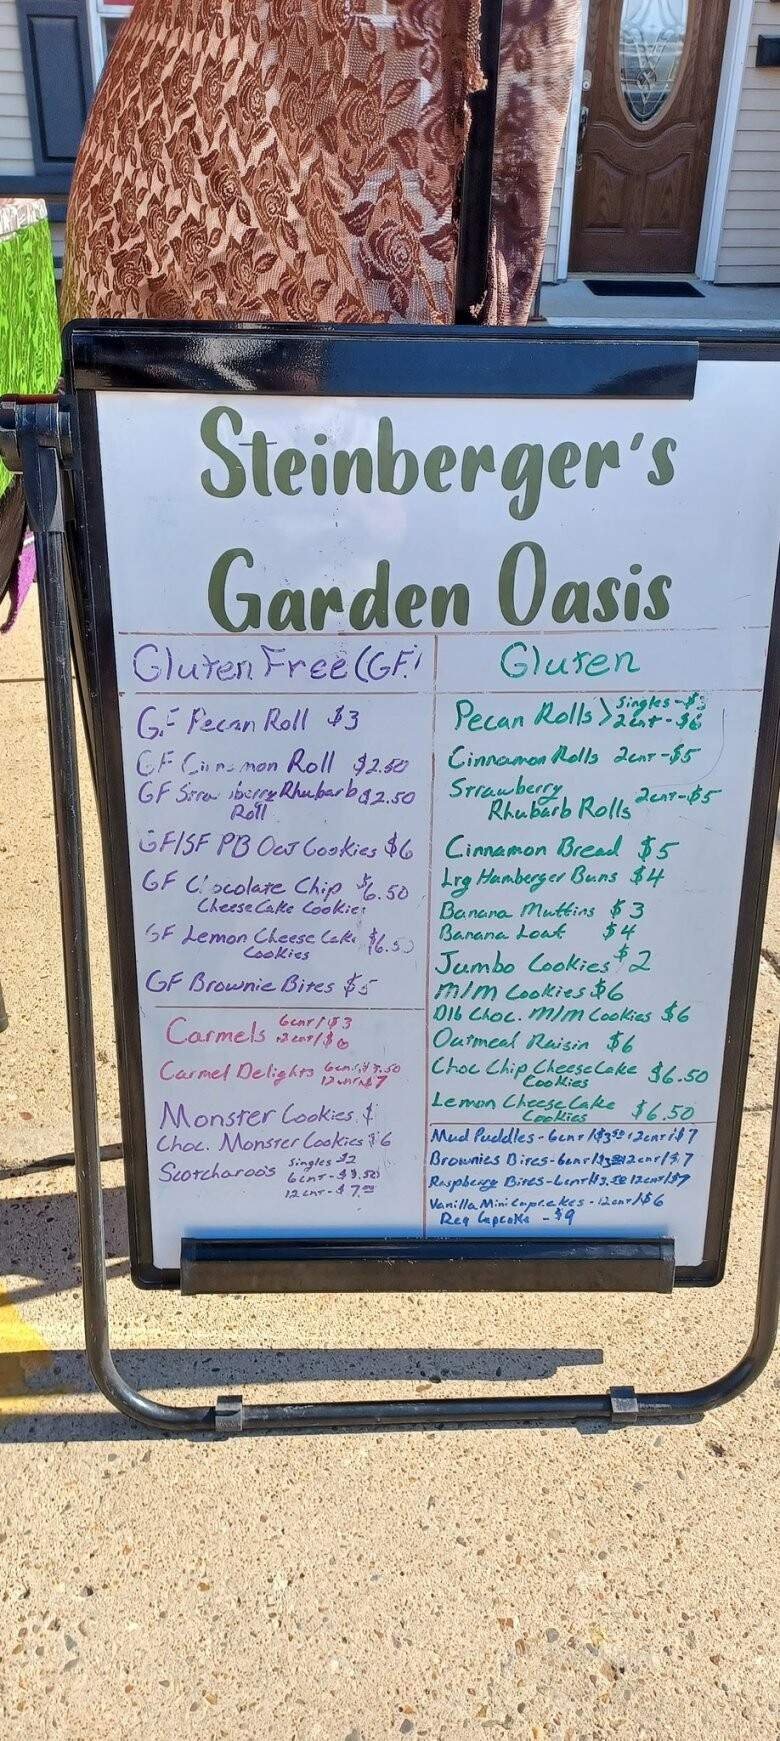 Steinberger's
Garden Oasis
Gluten Free (GF)
GF Pecan Roll $3
GF Cinnamon Roll $2.50
GF Strawberry Rhubarb $2.50
Roll
GF/SF PB Oat Cookies $6
GF Chocolate Chip $6.50
Cheese Cake Cookies
GF Lemon Cheese Cake $6.50
Cookies
GF Brownie Bites $5
Carmels 6cnt/$3
12cnt/$6
Carmel Delights 6cnt/$3.50
12cnt/$7
Monster Cookies $
Choc. Monster Cookies $6
Scotcharoos Singles $2
6cnt-$3.50
12cnt-$7.00
Gluten
Pecan Rolls > Singles-$3
2cnt-$6
Cinnamon Rolls 2cnt-$5
Strawberry
Rhubarb Rolls 2cnt-$5
Cinnamon Bread $5
Lrg Hamberger Buns $4
Banana Muffins $3
Banana Loaf $4
Jumbo Cookies $2
M/M Cookies $6
Dlb Choc. M/M Cookies $6
Oatmeal Raisin $6
Choc Chip Cheese Cake $6.50
Cookies
Lemon Cheese Cake $6.50
Cookies
Mud Puddles-6cnt/$3.50 12cnt/$7
Brownies Bites-6cnt/$3.50 12cnt/$7
Raspberry Bites-6cnt/$3.50 12cnt/$7
Vanilla Mini Cupcakes-12cnt/$6
Reg Cupcake-$9